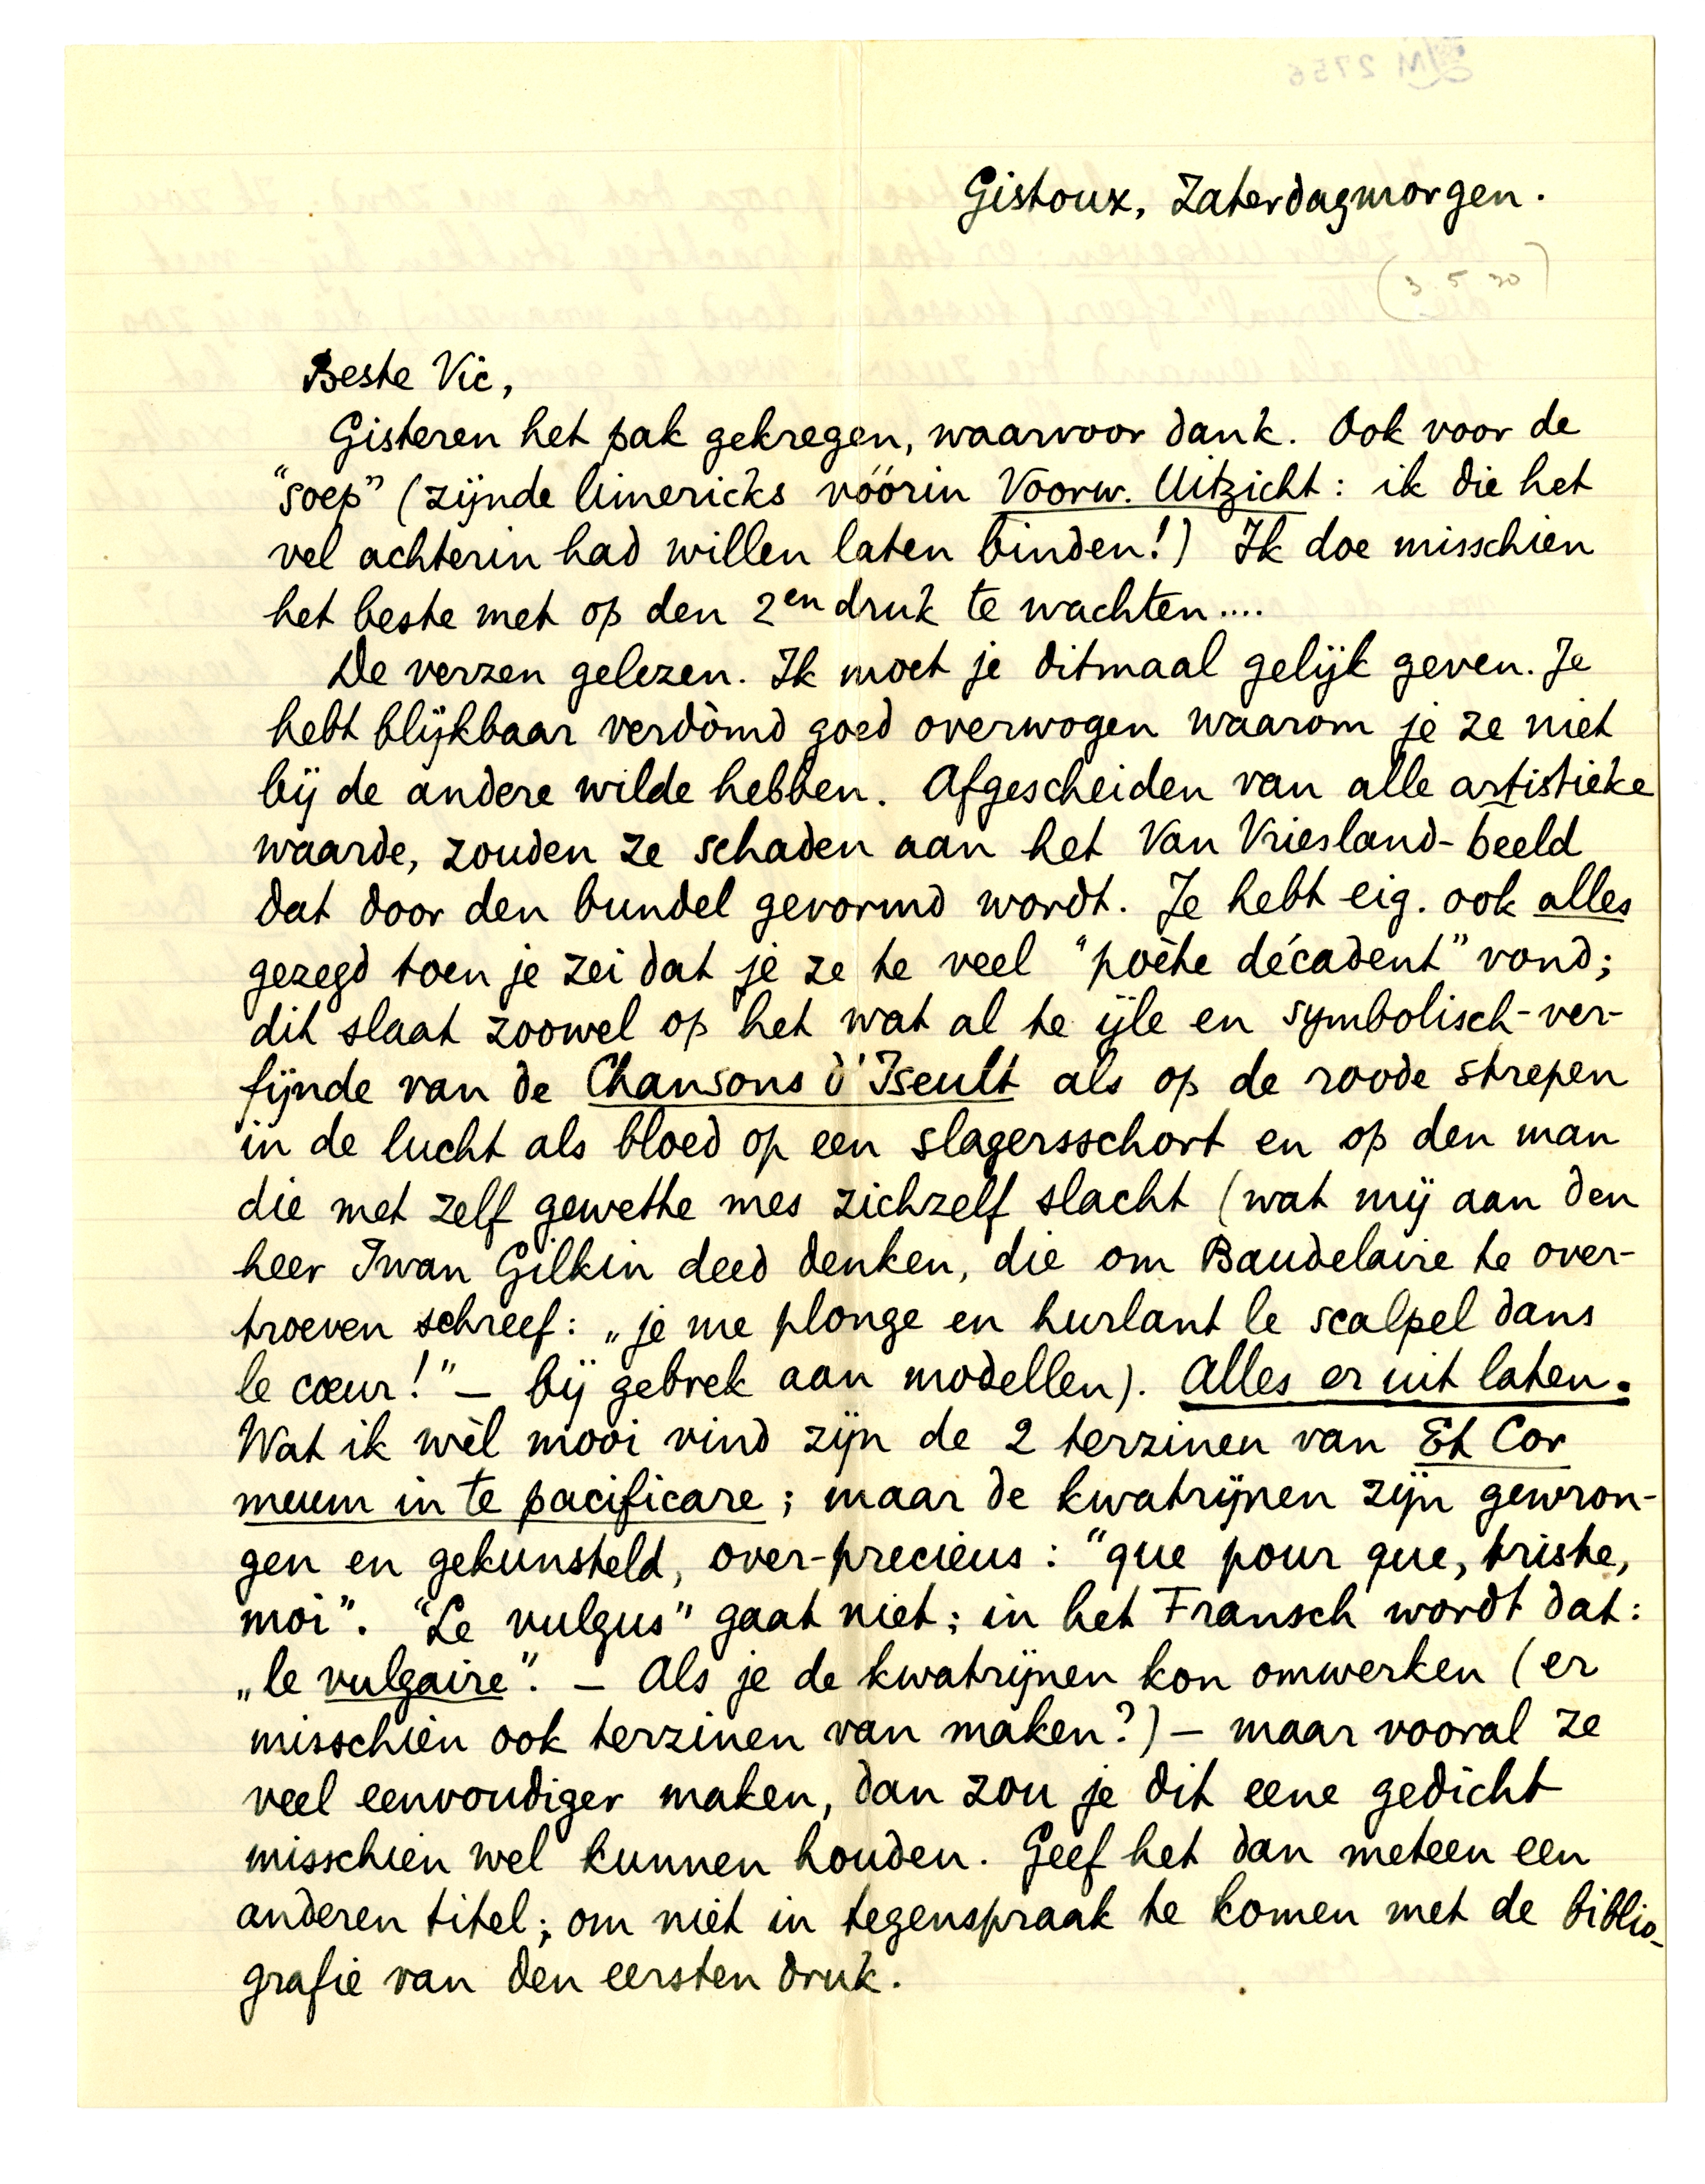 Gistoux, Zaterdagmorgen.
(3 5 30)
Beste Vic,
Gisteren het pak gekregen, waarvoor dank. Ook voor de
"soep" (zijnde limericks vóórin Voorw. Uitzicht: ik die het
vel achterin had willen laten binden!) Ik doe misschien
het beste met op den 2en druk te wachten....
De verzen gelezen. Ik moet je ditmaal gelijk geven. Je
hebt blijkbaar verdòmd goed overwogen waarom je ze niet
bij de andere wilde hebben. Afgescheiden van alle artistieke
waarde, zouden ze schaden aan het Van Vriesland-beeld
dat door den bundel gevormd wordt. Je hebt eig. ook alles
gezegd toen je zei dat je ze te veel "poète décadent" vond;
dit slaat zoowel op het wat al te ijle en symbolisch-ver-
fijnde van de Chansons d'Iseult als op de roode strepen
in de lucht als bloed op een slagersschort en op den man
die met zelf gewette mes zichzelf slacht (wat mij aan den
heer Iwan Gilkin deed denken, die om Baudelaire te over-
troeven schreef: „je me plonge en hurlant le scalpel dans
le cœur!" – bij gebrek aan modellen). Alles er uit laten.
Wat ik wèl mooi vind zijn de 2 terzinen van Et Cor
meum in te pacificare; maar de kwatrijnen zijn gewron-
gen en gekunsteld, over-precieus: "que pour que, triste,
moi". "Le vulgus" gaat niet; in het Fransch wordt dat:
„le vulgaire". – Als je de kwatrijnen kon omwerken (er
misschien ook terzinen van maken?) – maar vooral ze
veel eenvoudiger maken, dan zou je dit eene gedicht
misschien wel kunnen houden. Geef het dan meteen een
anderen titel; om niet in tegenspraak te komen met de biblio-
grafie van den eersten druk.